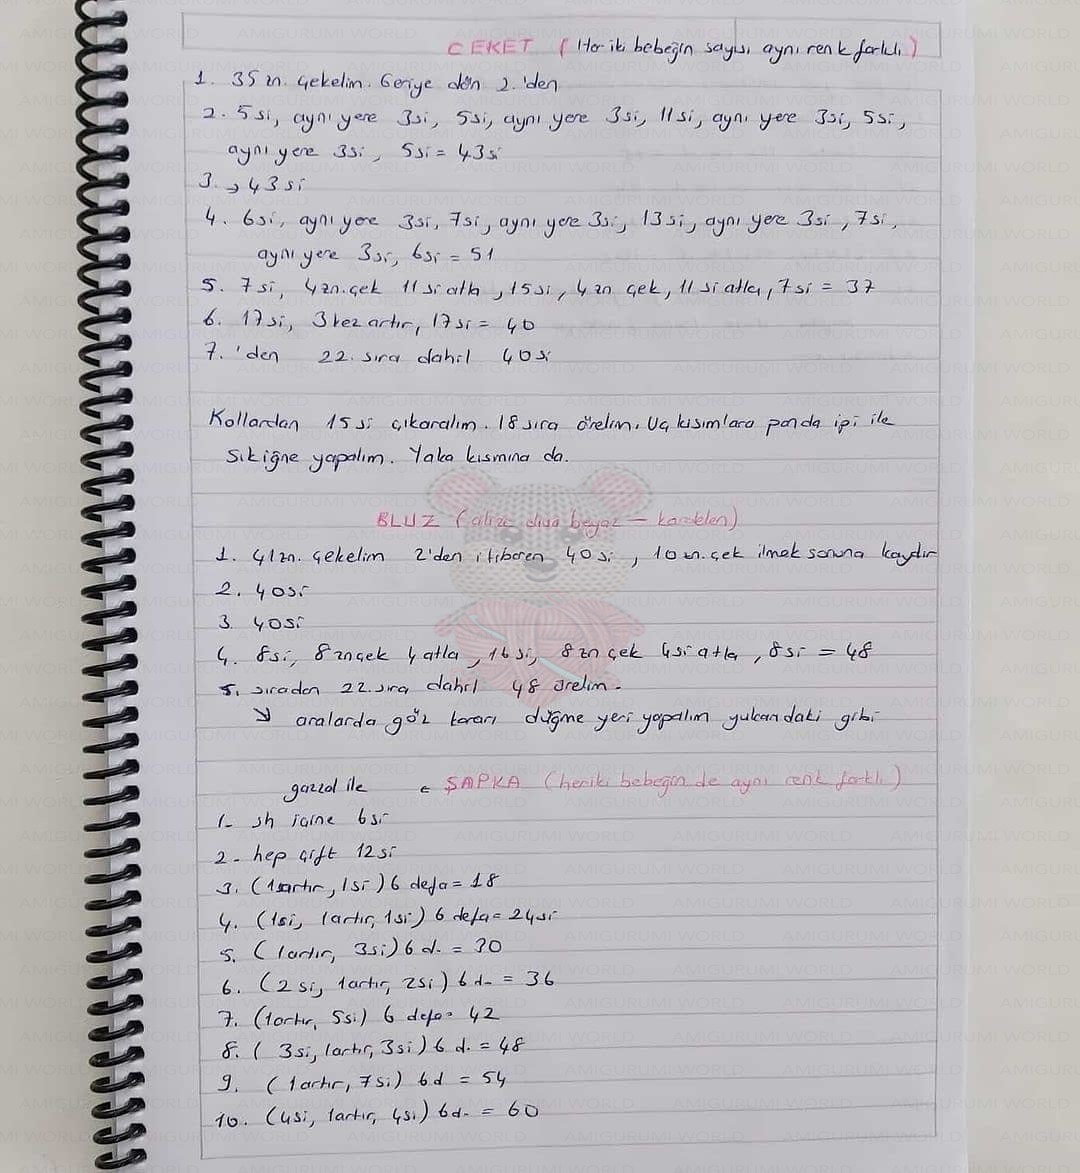 CEKET ( Her iki bebeğin sayısı aynı renk farklı )
1. 35 zn. çekelim. Geriye dön 2.'den
2. 5 si, aynı yere 3si, 5si, aynı yere 3si, 11 si, aynı yere 3si, 5si,
aynı yere 3si, 5si = 43si
3. → 43 si
4. 6si, aynı yere 3si, 7si, aynı yere 3si, 13 si, aynı yere 3si, 7si,
aynı yere 3si, 6si = 51
5. 7 si, 4 zn. çek 11 si atla, 15si, 4 zn çek, 11 si atla, 7si = 37
6. 17si, 3 kez artır, 17si = 40
7. 'den 22. sıra dahil 40si
Kollardan 15 si çıkaralım. 18 sıra örelim. Uç kısımlara panda ipi ile
sık iğne yapalım. Yaka kısmına da.
BLUZ (alize diva beyaz - kardelen)
1. 41 zn. çekelim 2'den itibaren 40 si, 10 zn. çek ilmek sonuna kaydır
2. 40si
3. 40si
4. 8si, 8 zn çek 4 atla, 16 si, 8 zn çek 4si atla, 8si = 48
5. sıradan 22. sıra dahil 48 örelim.
↘ aralarda göz kararı düğme yeri yapalım yukarıdaki gibi
gazzal ile ← ŞAPKA (her iki bebeğin de aynı renk farklı)
1- sh içine 6si
2- hep çift 12si
3. (1artır, 1si) 6 defa = 18
4. (1si, 1artır, 1si) 6 defa = 24si
5. (1artır, 3si) 6 d. = 30
6. (2 si, 1artır, 2si) 6 d- = 36
7. (1artır, 5si) 6 defa = 42
8. ( 3si, 1artır, 3si) 6 d. = 48
9. (1artır, 7si) 6d = 54
10. (4si, 1artır, 4si) 6d- = 60
AMIGURUMI WORLD